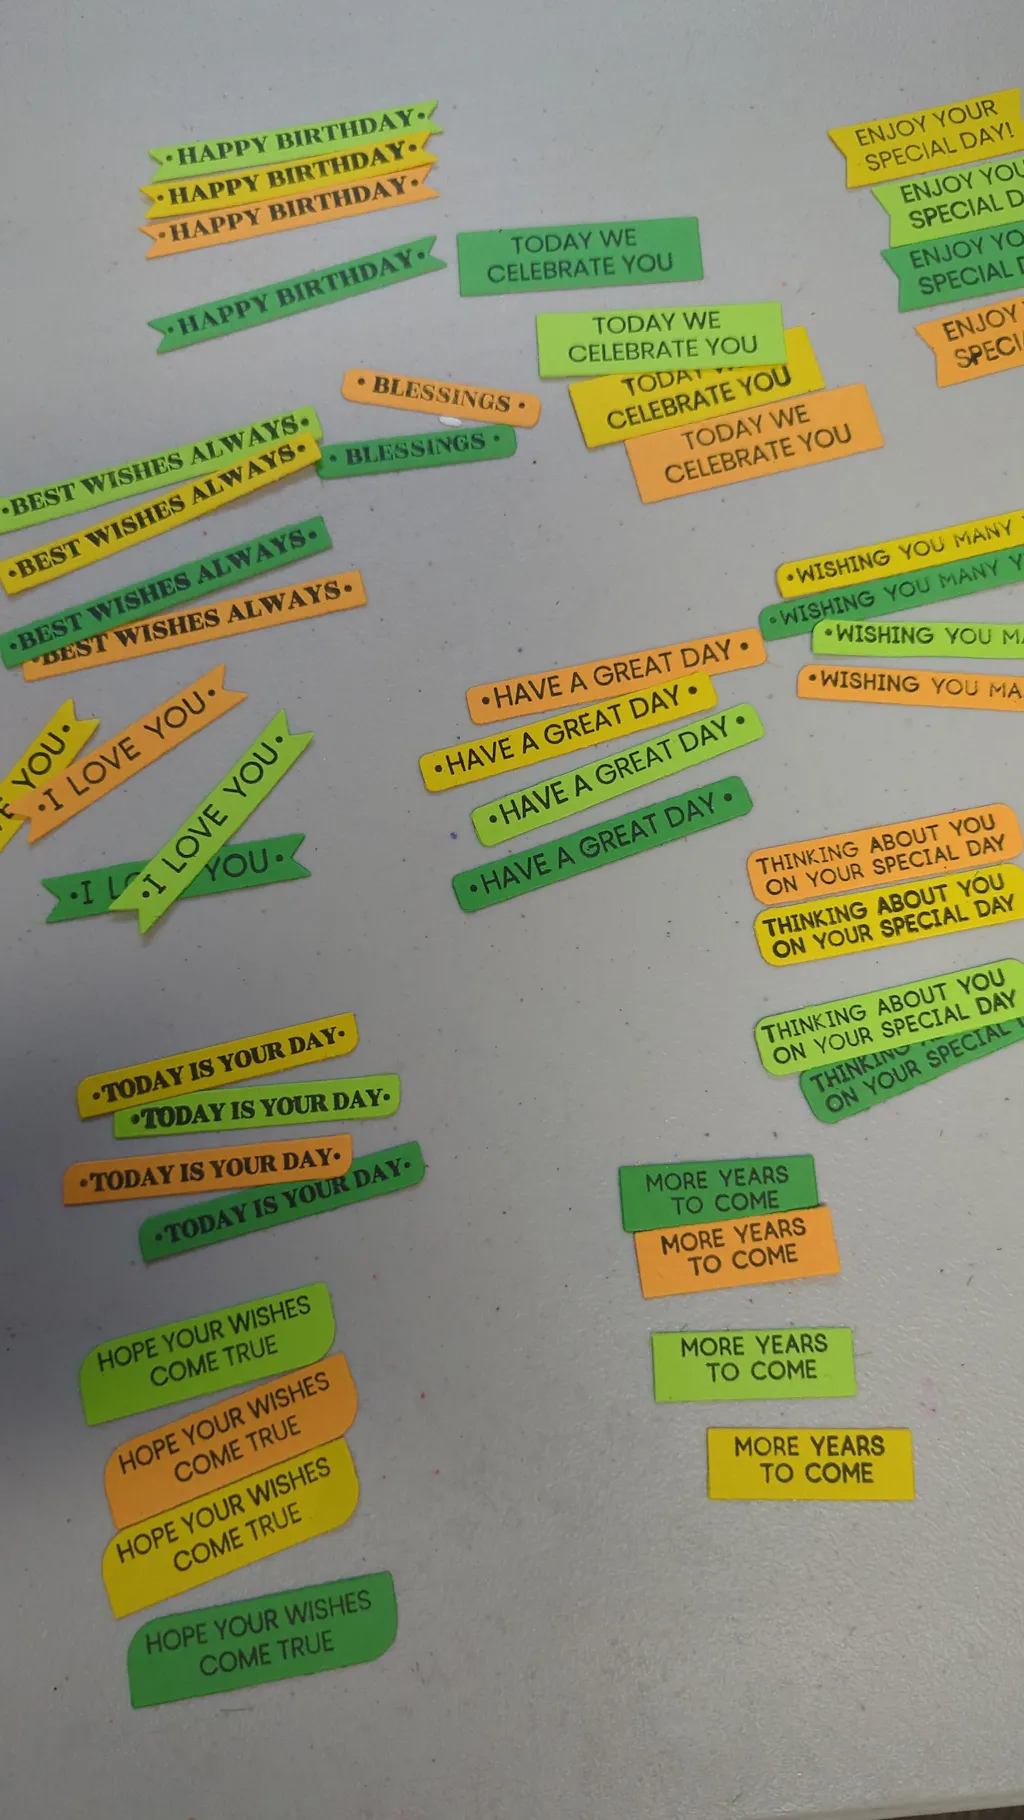 •HAPPY BIRTHDAY•
•HAPPY BIRTHDAY•
•HAPPY BIRTHDAY•
•HAPPY BIRTHDAY•
TODAY WE
CELEBRATE YOU
TODAY WE
CELEBRATE YOU
TODAY
CELEBRATE YOU
TODAY WE
CELEBRATE YOU
ENJOY YOUR
SPECIAL DAY!
ENJOY
SPECIAL
ENJOY
SPECIAL
ENJOY
• BLESSINGS •
• BLESSINGS •
•BEST WISHES ALWAYS•
•BEST WISHES ALWAYS•
•BEST WISHES ALWAYS•
•BEST WISHES ALWAYS•
•WISHING YOU MANY
•WISHING YOU MANY
•WISHING YOU
•WISHING YOU
YOU•
•I LOVE YOU•
•I LOVE YOU•
•I YOU•
•HAVE A GREAT DAY•
•HAVE A GREAT DAY•
•HAVE A GREAT DAY•
•HAVE A GREAT DAY•
THINKING ABOUT YOU
ON YOUR SPECIAL DAY
THINKING ABOUT YOU
ON YOUR SPECIAL DAY
THINKING ABOUT YOU
ON YOUR SPECIAL DAY
THINKING
ON YOUR SPECIAL
•TODAY IS YOUR DAY•
•TODAY IS YOUR DAY•
•TODAY IS YOUR DAY•
•TODAY IS YOUR DAY•
MORE YEARS
TO COME
MORE YEARS
TO COME
MORE YEARS
TO COME
MORE YEARS
TO COME
HOPE YOUR WISHES
COME TRUE
HOPE YOUR WISHES
COME TRUE
HOPE YOUR WISHES
COME TRUE
HOPE YOUR WISHES
COME TRUE